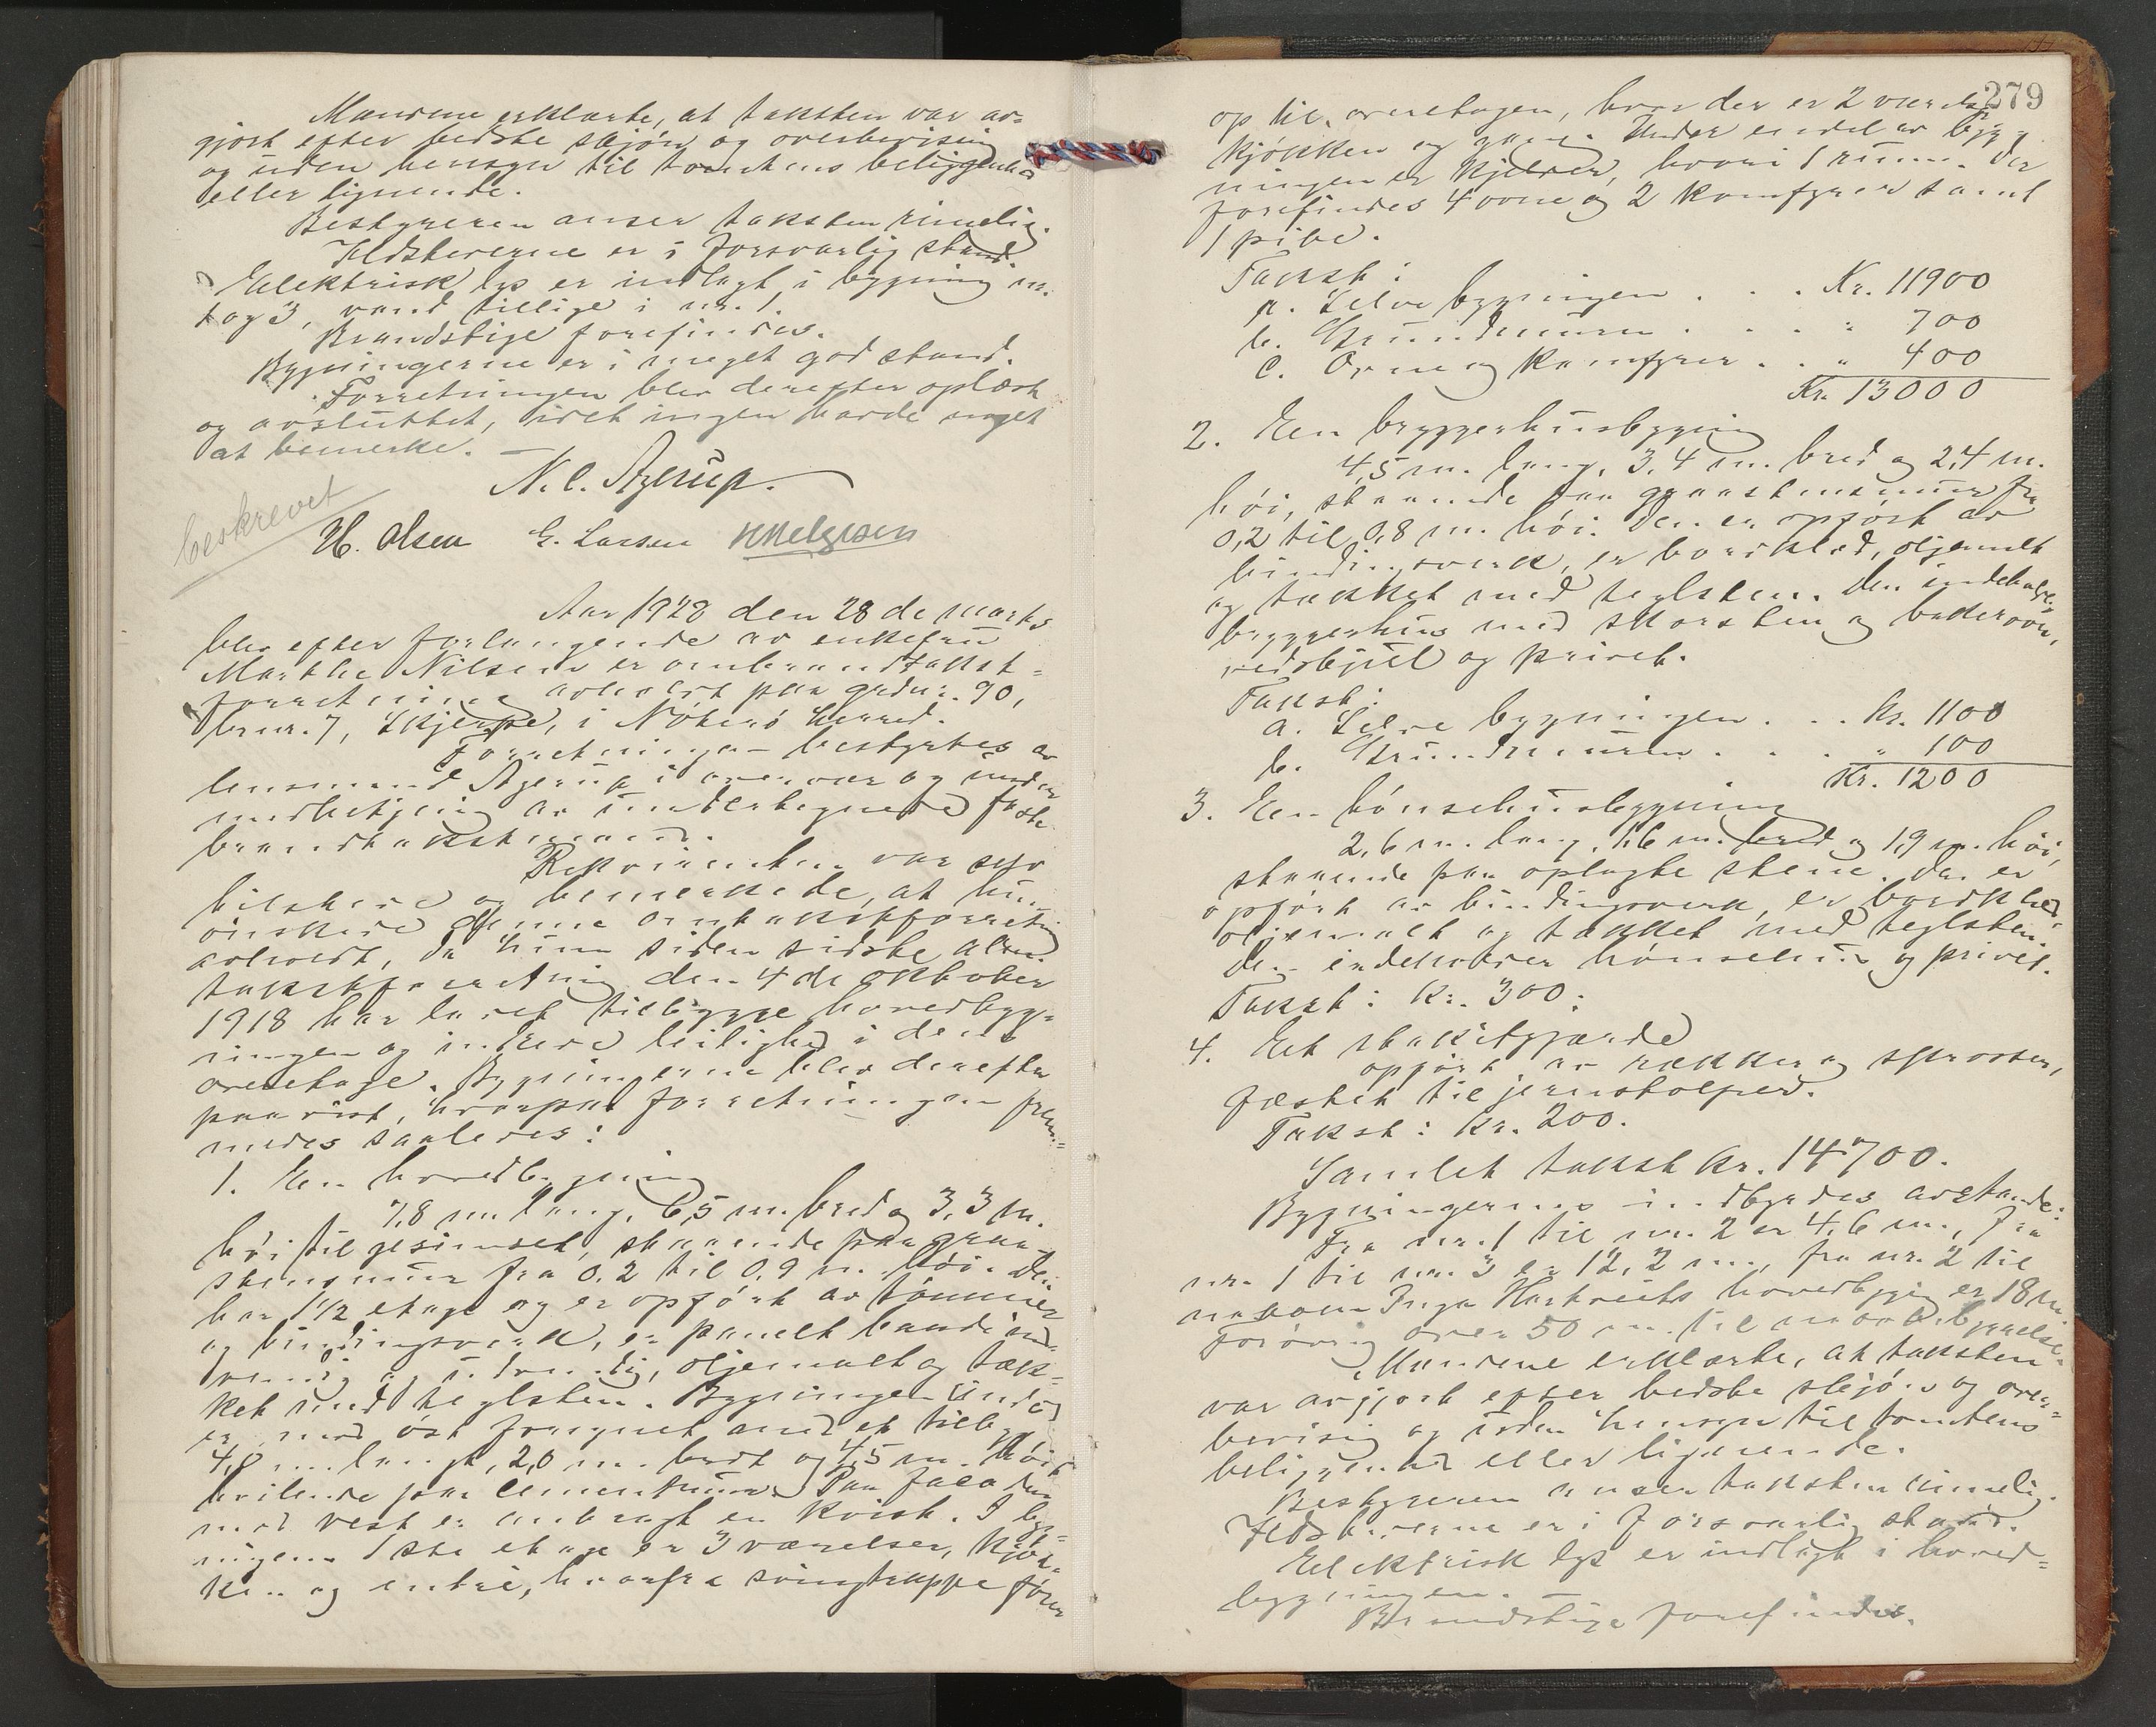 Mændene erklærte, at taksten var av-
gjort efter bedste skjøn og overbevisning
og uden hensyn til tomtens beliggenhed
eller lignende.
Bestyreren anser taksten rimelig.
Ildstederne er i forsvarlig stand.
Elektrisk lys er indlagt i bygning nr.
1 og 3, vand tillige i nr. 1.
Brandstige forefindes.
Bygningerne er i meget god stand.
Forretningen blev derefter oplæst
og avsluttet, idet ingen havde noget
at bemerke. —
N. C. Agerup.
beskrevet
H. Olsen G. Larsen
Aar 1928 den 28 de marts
blev efter forlangende av enkefru
Marthe Nilsen er ombrandtakst-
forretning avholdt paa gaardsnr. 90,
brnr. 7, Skjerpe, i Nøterø herred.
Forretningen bestyrtes av
lensmand Agerup i overvær og under
medvirkning av undertegnede faste
brandtakstmænd.
Rekvirenten var selv
tilstede og bemerkede, at hun
ønskede denne omtakstforretning
avholdt, da hun siden sidste alm.
takstforretning den 4 de oktober
1918 har ladet tilbygge hovedbyg-
ningen og indrede leilighed i dens
overetage. Bygningerne blev derefter
paavist, hvorpaa forretningen frem-
medes saaledes:
1. En hovedbygning
7,8 m. lang, 6,5 m. bred og 3,3 m.
høi til gesimset, staaende paa graa-
stensmur fra 0,2 til 0,9 m. høi. Den
har 1 1/2 etage og er opført av tømmer
og bindingsverk, er panelt baade ind-
vendig og utvendig, oljemalt og tæk-
ket med teglsten. Bygningen
er mod øst forsynet med et tilbyg
4,0 m. langt, 2,0 m. bredt og 4,5 m. høit
hvilende paa cementmur. Paa facaden
mod vest er anbragt en kvist. I byg-
ningens 1 ste etage er 3 værelser, kjøk-
ken og entré, hvorfra svingtrappe fører
279
op til overetagen, hvor der er 2 værelser,
kjøkken og gang. Under en del av byg-
ningen er kjelder, hvori 1 rum. Der
forefindes 4 ovne og 2 komfyrer samt
1 pibe.
Takst:
a. Selve bygningen . . . Kr. 11900
b. Grundmuren . . . . " 700
c. Ovne og komfyrer . . " 400
Kr. 13000
2. En bryggerhusbygning
4,5 m. lang, 3,4 m. bred og 2,4 m.
høi, staaende paa graastensmur fra
0,2 til 0,8 m. høi. Den er opført av
bindingsverk, er bordklæd, oljemalt
og tækket med teglsten. Den indeholder
bryggerhus med skorsten og bakerovn,
vedskjul og privet.
Takst:
a. Selve bygningen . . . Kr. 1100
b. Grundmuren . . . . " 100
Kr. 1200
3. En hønsehusbygning
2,6 m. lang, 1,6 m. bred og 1,9 m. høi,
staaende paa oplagte stene. Den er
opført av bindingsverk, er bordklæd,
oljemalt og tækket med teglsten.
Den indeholder hønsehus og privet.
Takst: Kr. 300:
4. Et stakitgjærde
opført av rækker og sprosser,
fæstet til jernstolper.
Takst: Kr. 200.
Samlet takst Kr. 14700.
Bygningernes indbyrdes avstande:
Fra nr. 1 til nr. 2 er 4,6 m., fra
nr. 1 til nr. 3 er 12,2 m., fra nr. 2 til
naboen Inga Hartveits hovedbygn. er 18 m.
forøvrig over 50 m. til nabobebyggelse.
Mændene erklærte, at taksten
var avgjort efter bedste skjøn og over-
bevisning og uden hensyn til tomtens
beliggenhed eller lignende.
Bestyreren anser taksten rimelig.
Ildstederne er i forsvarlig stand.
Elektrisk lys er indlagt i hoved-
bygningen.
Brandstige forefindes.